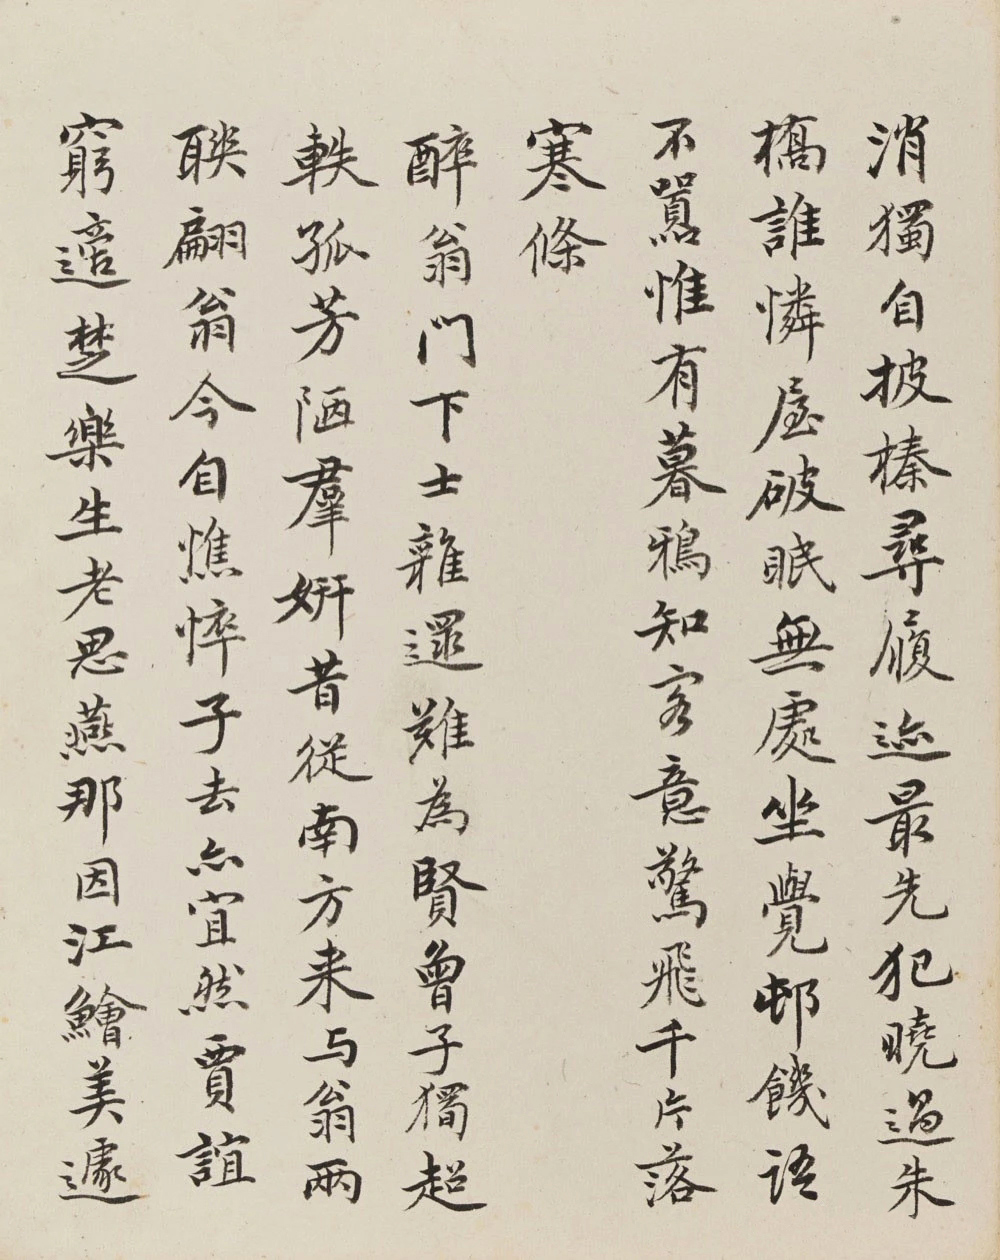 消獨自披榛尋履迹最先犯曉過朱
橋誰憐屋破眠無處坐覺邨饑語
不嚚惟有暮鴉知客意驚飛千片落
寒條
醉翁門下士雜遝難為賢曾子獨超
軼孤芳陋羣妍昔從南方来与翁兩
聯翩翁今自憔悴子去亦宜然賈誼
窮適楚樂生老思燕那因江鱠美遽